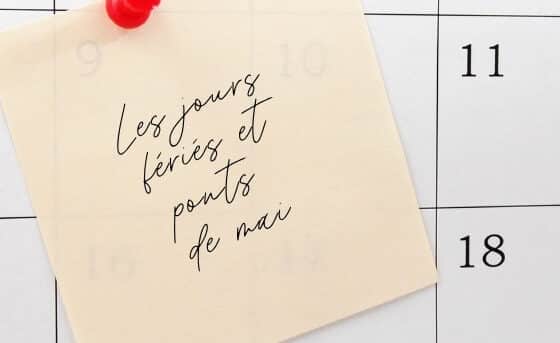 9
10
11
Les jours
fériés et
ponts
de mai
16
17
18